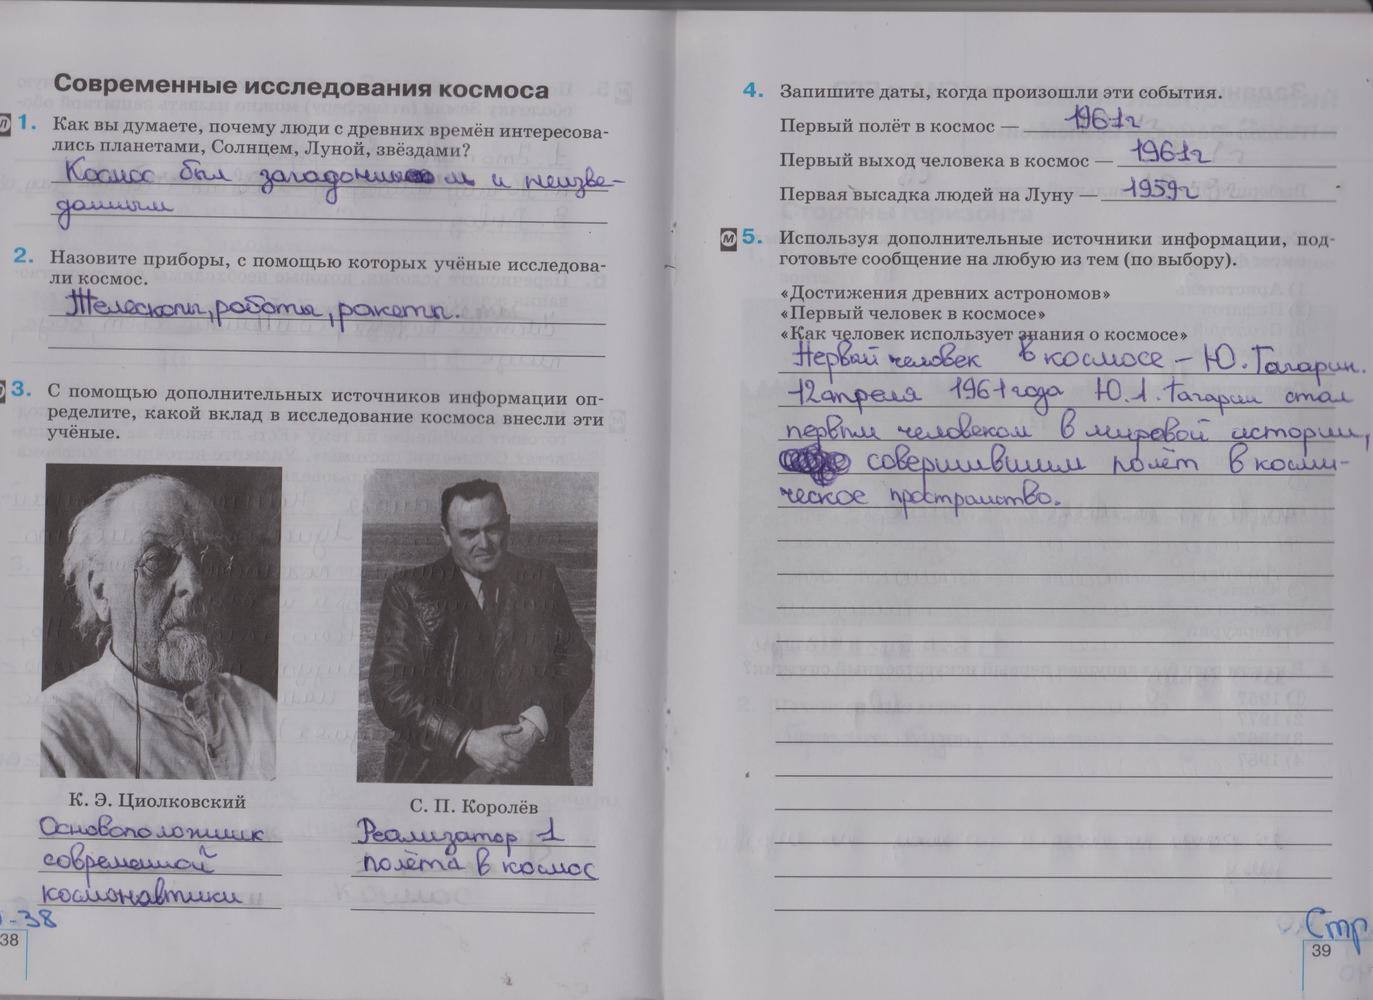 Современные исследования космоса
1. Как вы думаете, почему люди с древних времён интересова-
лись планетами, Солнцем, Луной, звёздами?
Космос был загадочным и неизве-
данным
2. Назовите приборы, с помощью которых учёные исследова-
ли космос.
Телескопы, роботы, ракеты.
3. С помощью дополнительных источников информации оп-
ределите, какой вклад в исследование космоса внесли эти
учёные.
К. Э. Циолковский
Основоположник
современной
космонавтики
С. П. Королёв
Реализатор 1
полёта в космос
38
38
4. Запишите даты, когда произошли эти события.
Первый полёт в космос — 1961г
Первый выход человека в космос — 1961г
Первая высадка людей на Луну — 1959г
м 5. Используя дополнительные источники информации, под-
готовьте сообщение на любую из тем (по выбору).
«Достижения древних астрономов»
«Первый человек в космосе»
«Как человек использует знания о космосе»
Первый человек в космосе – Ю. Гагарин.
12 апреля 1961 года Ю. А. Гагарин стал
первым человеком в мировой истории,
совершившим полёт в косми-
ческое пространство.
Стр
39